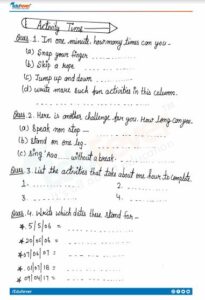 Activity Time
Ques. 1. In one minute, how many times can you -
(a) Snap your finger
(b) Skip a rope
(c) Jump up and down
(d) write more such fun activities in this column.
Ques. 2. Here is another challenge for you. How long can you.
(a) Speak non stop -
(b) Stand on one leg -
(c) Sing 'Aaa ... without a break -
Ques. 3. List the activities that take about one hour to complete.
1. 2.
3. 4.
Ques. 4. Write which dates these stand for -
* 5/5/06 =
* 20/02/06 =
* 07/06/07 =
* 01/07/18 =
* 09/04/17 =